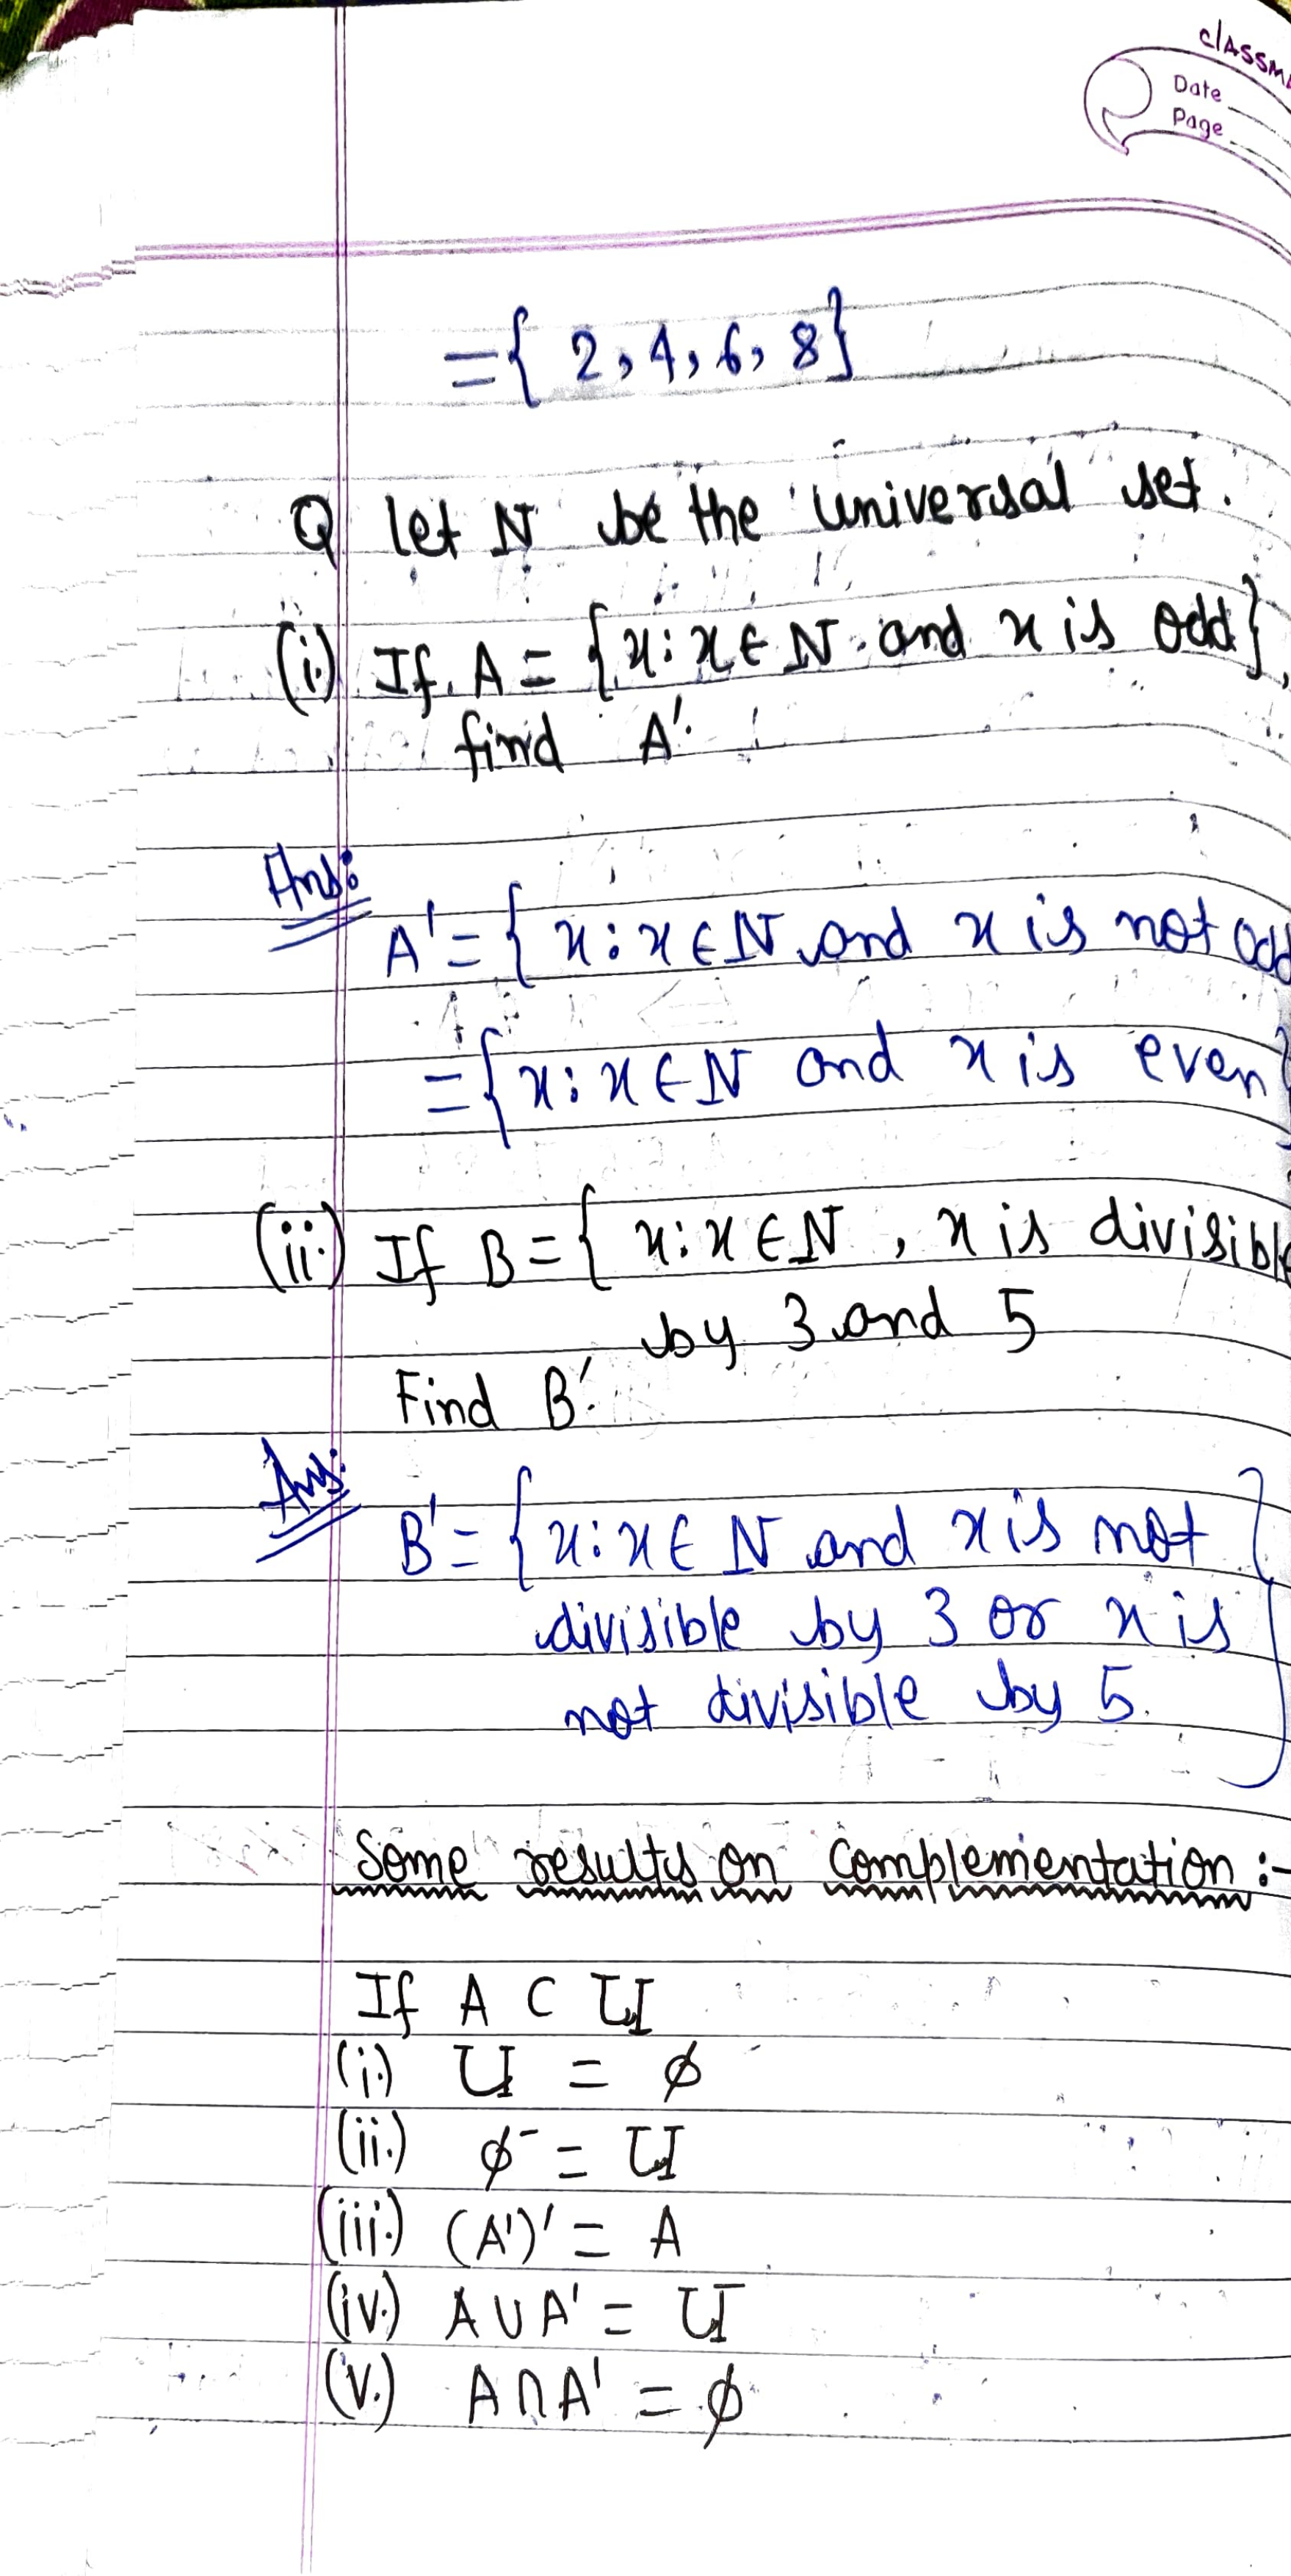 classm
Date
Page
= { 2, 4, 6, 8}
Q let N be the universal set.
(i.) If A = {x : x ∈ N and x is odd},
find A'.
Ans:
A' = { x : x ∈ N and x is not odd
= {x : x ∈ N and x is even}
(ii.) If B = { x : x ∈ N , x is divisible
by 3 and 5
Find B'.
Ans:
B' = { x : x ∈ N and x is not
divisible by 3 or x is
not divisible by 5. }
Some results on Complementation :-
If A ⊂ U
(i.) U = ϕ
(ii.) ϕ- = U
(iii.) (A')' = A
(iv.) A ∪ A' = U
(v.) A ∩ A' = ϕ